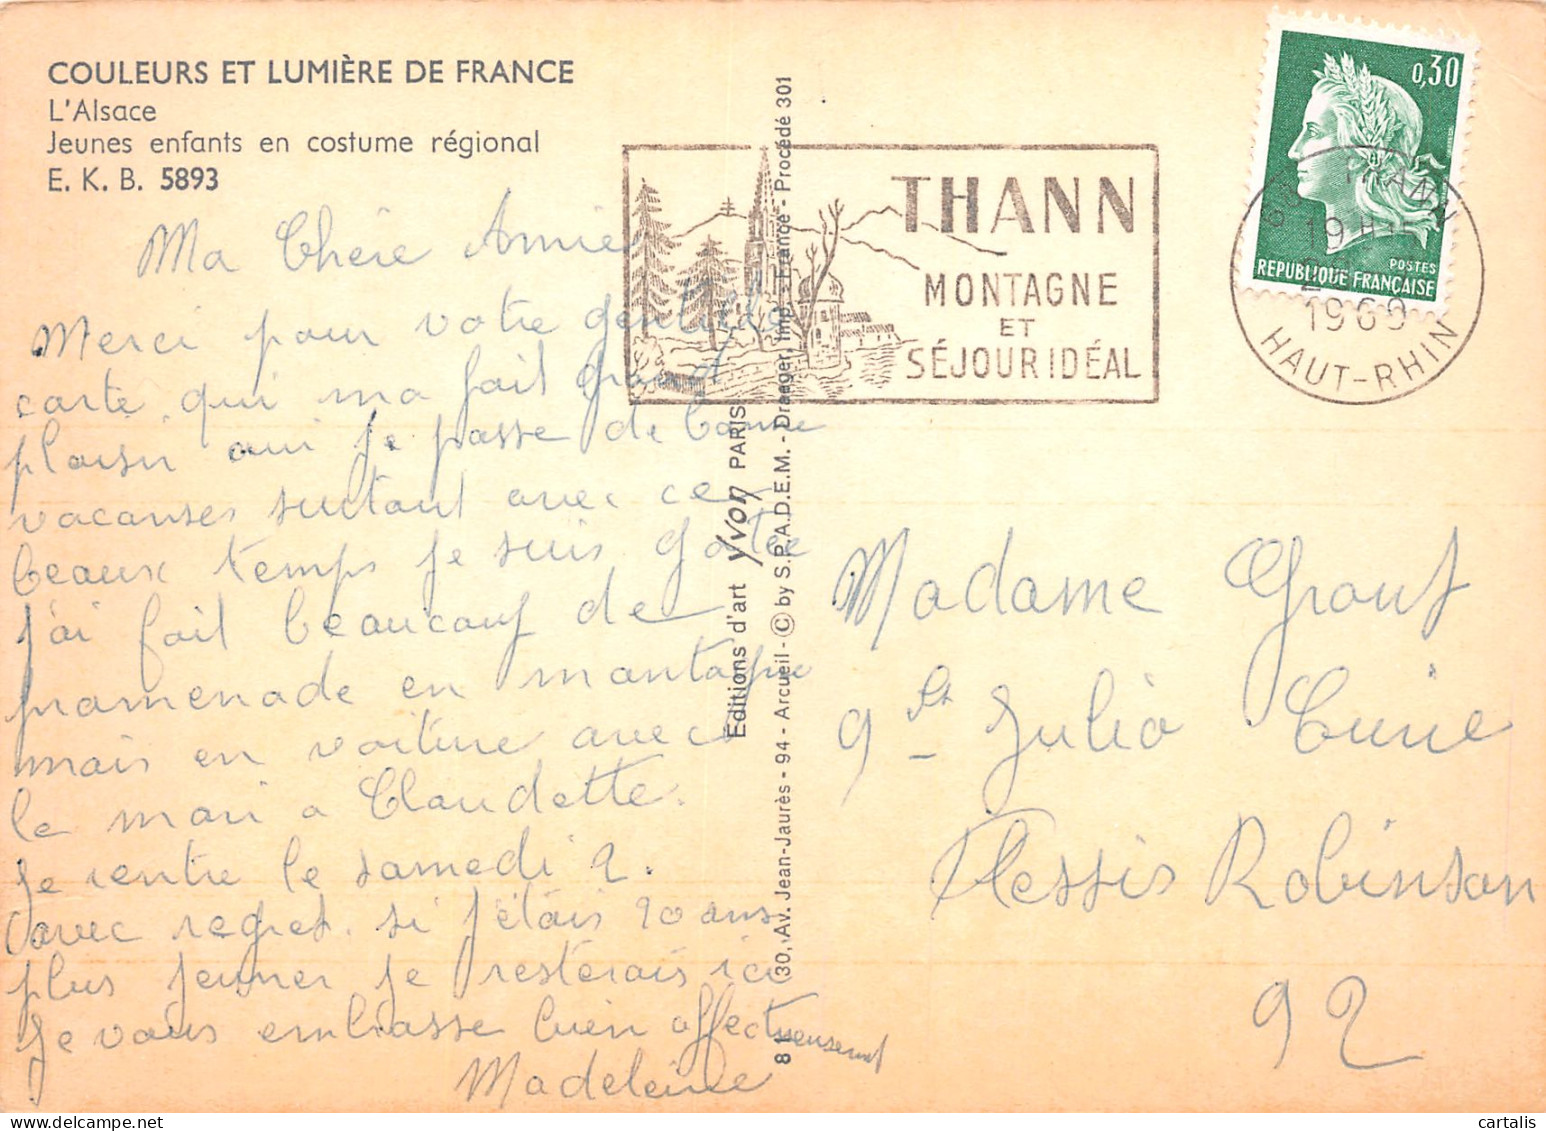 COULEURS ET LUMIÈRE DE FRANCE
L'Alsace
Jeunes enfants en costume régional
E. K. B. 5893
Ma Chère Amie
Merci pour votre gentille
carte qui ma fait grand
plaisir oui je passe de bonne
vacanses surtout avec ce
beaux temps je suis gatée
j'ai fait beaucoup de
promenade en montagne
mais en voiture avec
le mari a Claudette.
je rentre le samedi 2.
avec regret. si j'étais 20 ans
plus jeuner je resterais ici
je vous embrasse bien affectueusement
Madeleine
Editions d'art Yvon PARIS
81 (30, Av. Jean-Jaurès - 94 - Arcueil - © by S.P.A.D.E.M. - Draeger, Imp. - France - Procédé 301
THANN
MONTAGNE
ET
SÉJOUR IDÉAL
0,30
POSTES
REPUBLIQUE FRANÇAISE
THANN
19 H
1969
HAUT-RHIN
Madame Grouf
9 Julio Curie
Plessis Robinson
92
cartalis
delcampe.net